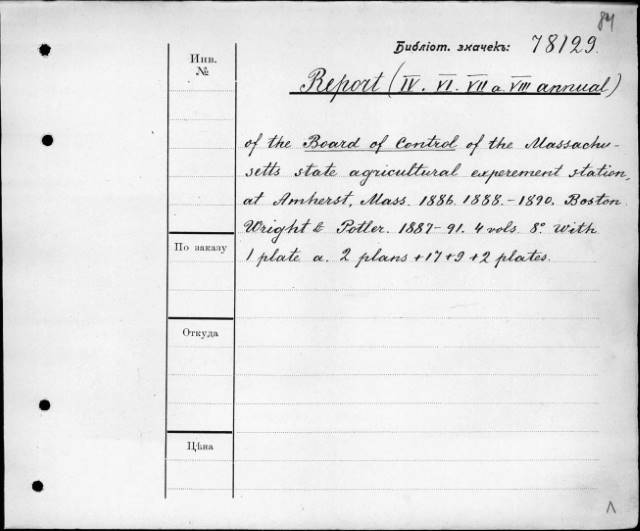 84
Библіот. значекъ: 78129.
Инв.
№
Report (IV. VI. VII a. VIII annual)
of the Board of Control of the Massachu-
setts state agricultural experement station,
at Amherst, Mass. 1886. 1888.-1890. Boston
Wright & Potler. 1887-91. 4 vols. 8º. With
1 plate a. 2 plans + 17 + 9 + 2 plates.
По заказу
Откуда
Цѣна